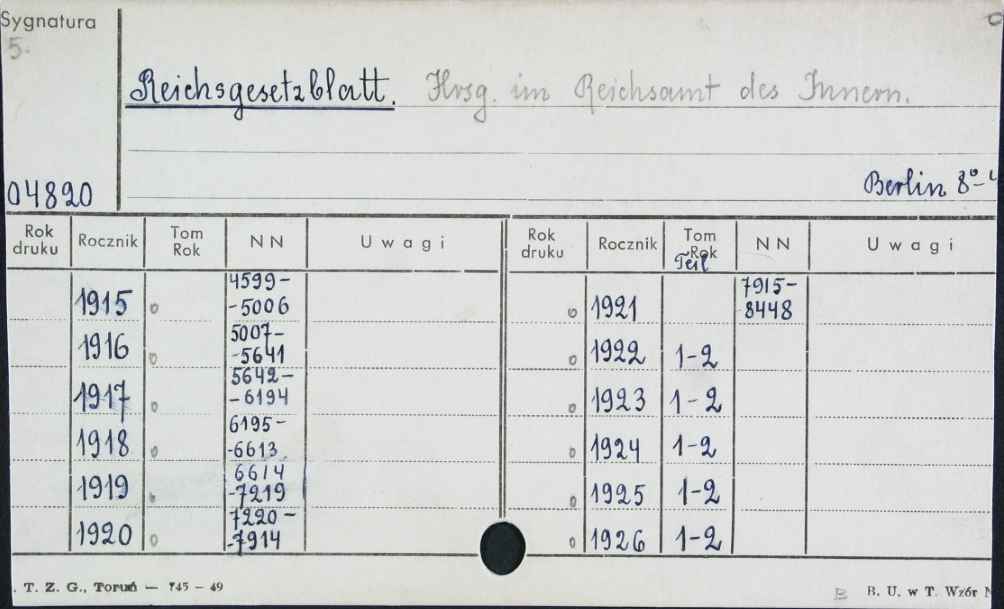 Sygnatura
5.
Reichsgesetzblatt. Hrsg. im Reichsamt des Innern.
04820
Berlin 8°-4
Rok druku Rocznik Tom Rok NN Uwagi Rok druku Rocznik Tom Rok Teil NN Uwagi
1915 4599-
-5006
1916 5007-
-5641
1917 5642-
-6194
1918 6195-
-6613
1919 6614
-7219
1920 7220-
-7914
1921 7915-
8448
1922 1-2
1923 1-2
1924 1-2
1925 1-2
1926 1-2
. T. Z. G., Toruń — 745 — 49
B. U. w T. Wzór